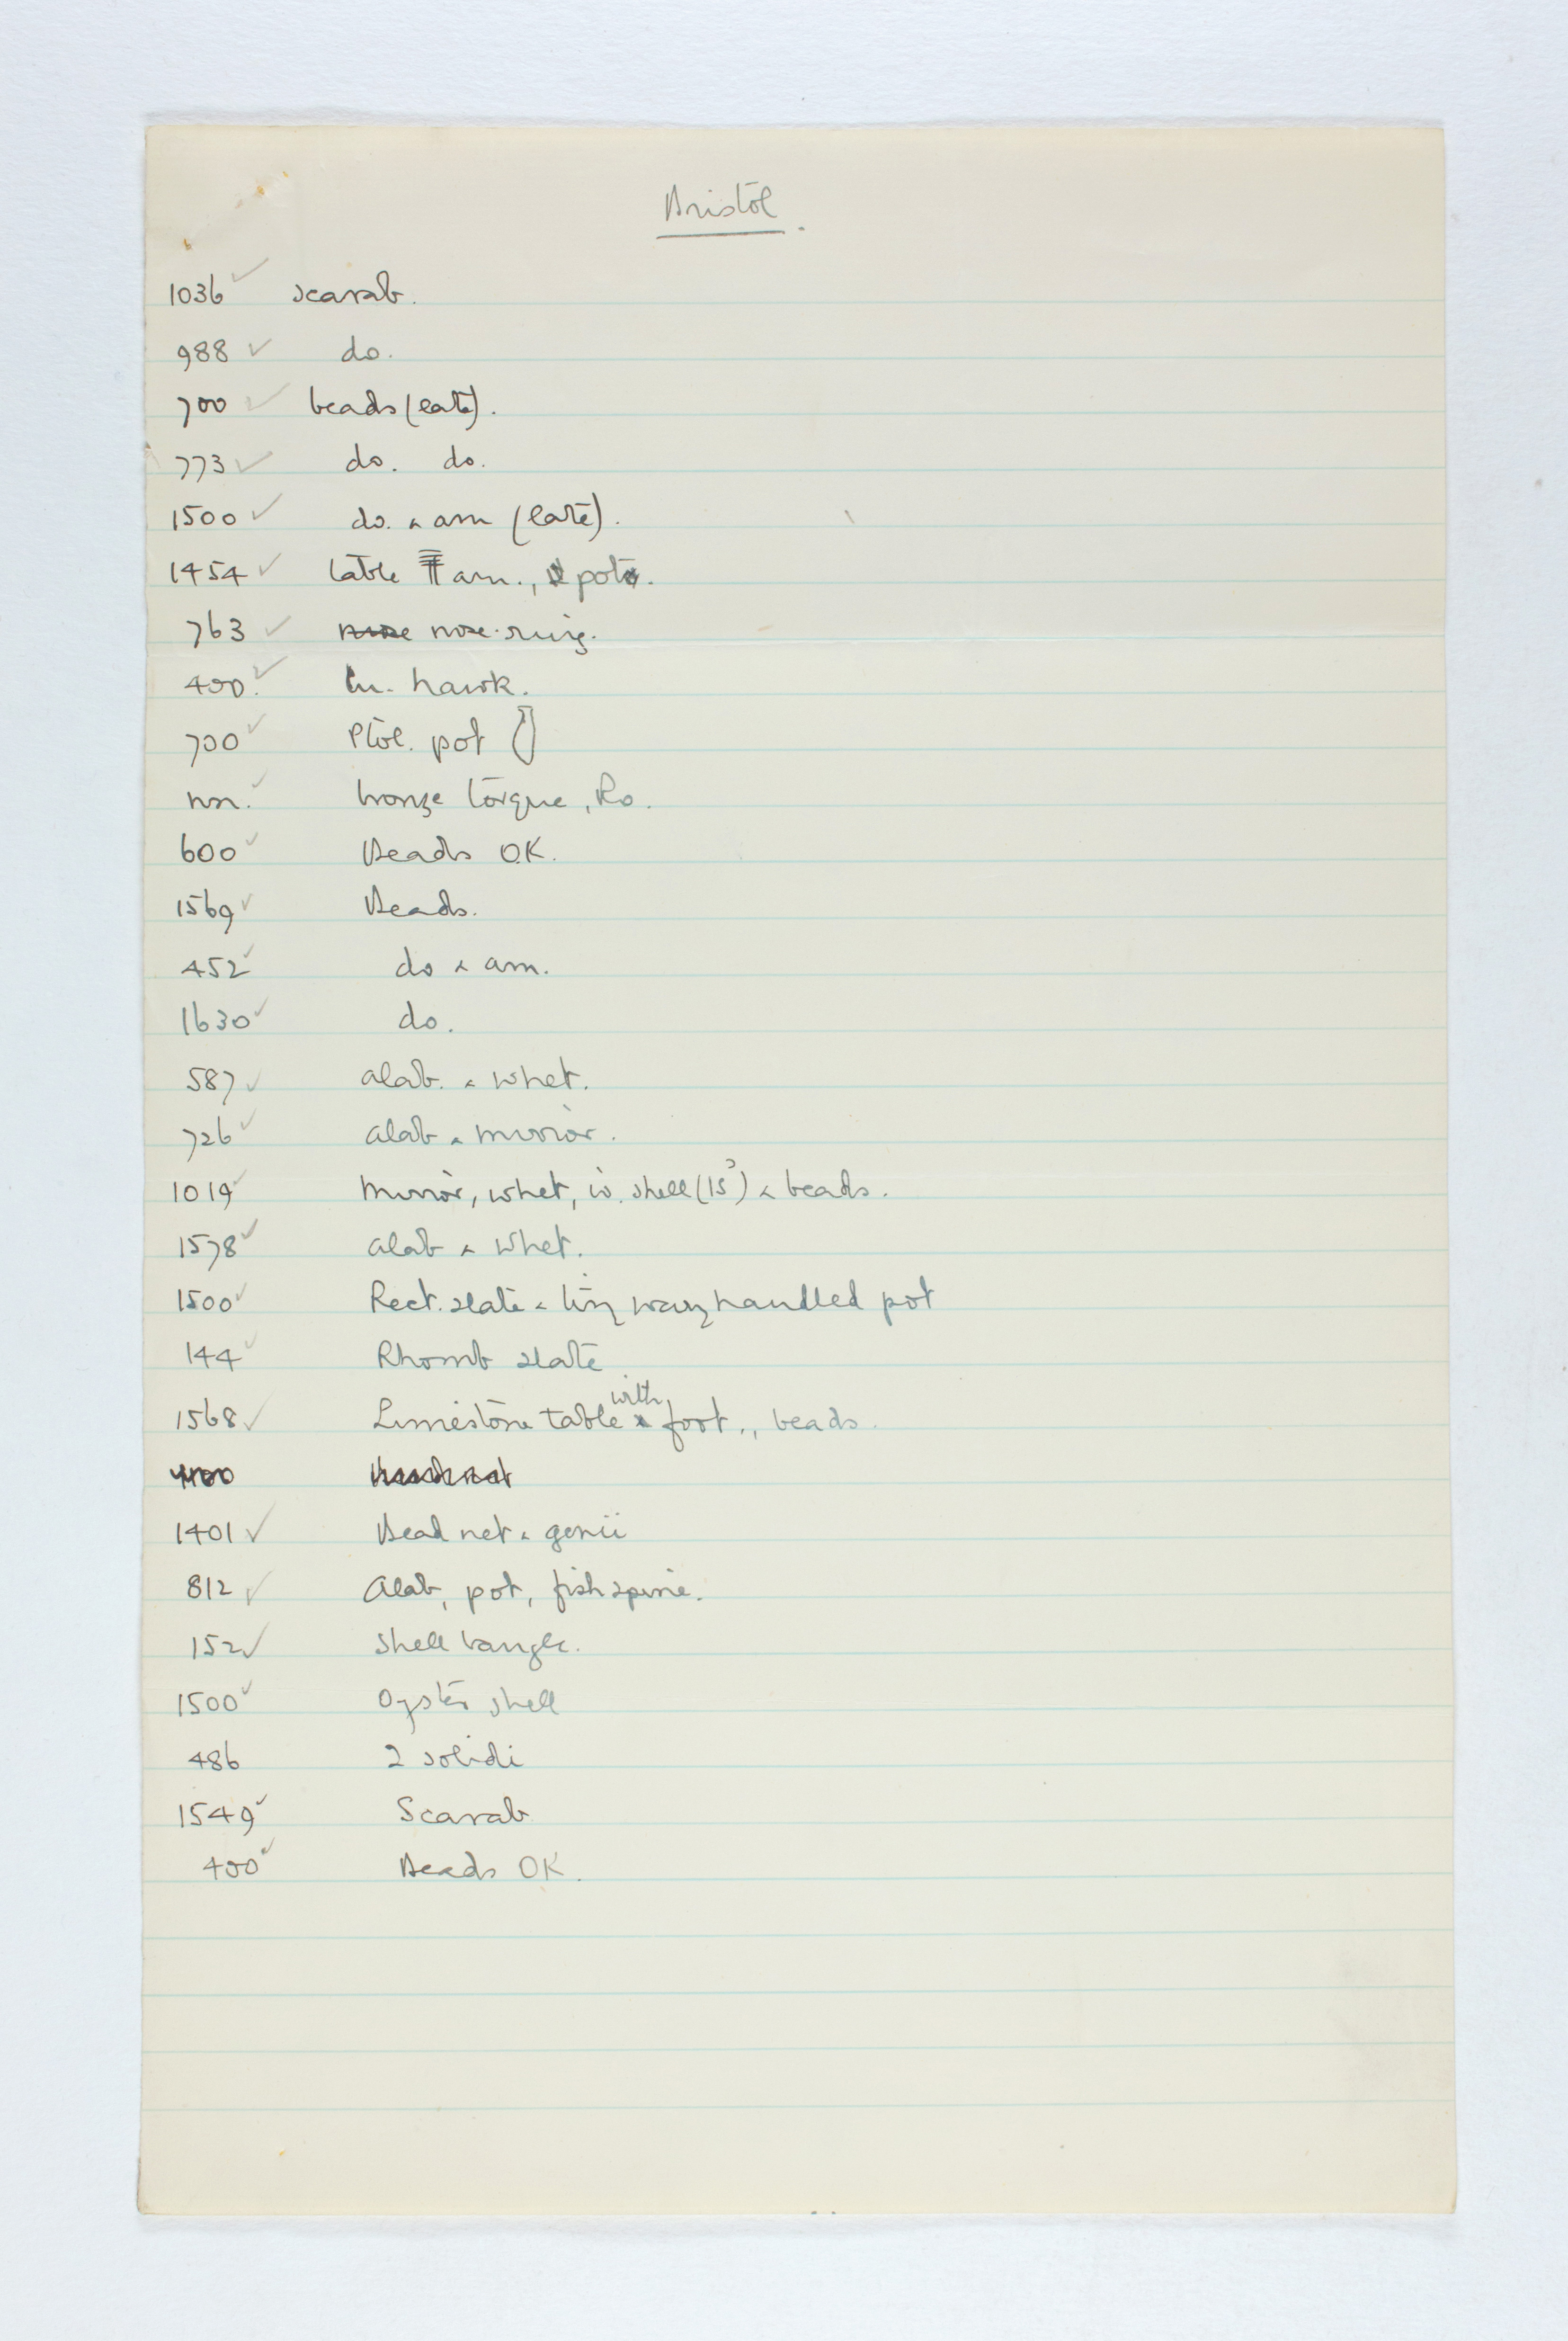 Bristol.
1036 ✓ scarab.
988 ✓ do.
700 ✓ beads (late).
773 ✓ do. do.
1500 ✓ do. & am (late).
1454 ✓ table am., pot.
763 ✓ nose-ring.
400. ✓ hawk.
700 ✓ Ptol. pot
nn. ✓ bronze torque, Ro.
600 ✓ Beads OK.
1569 ✓ Beads.
452 ✓ do & am.
1630 ✓ do.
587 ✓ alab. & whet.
726 ✓ alab & mirror.
1019 ✓ Mirror, whet, iv. shell (15) & beads.
1578 ✓ alab & whet.
1500 ✓ Rect. slate & tiny wavy handled pot
144 ✓ Rhomb slate
1568 ✓ Limestone table with foot., beads.
1401 ✓ Bead net & genii
812 ✓ Alab, pot, fish spine.
152 ✓ Shell bangle.
1500 ✓ Oyster shell
486 2 solidi
1549 ✓ Scarab
400 ✓ Beads OK.